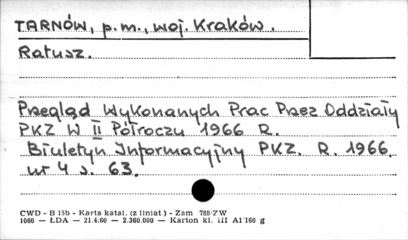 TARNÓW, p.m., woj. Kraków.
Ratusz.
Przegląd Wykonanych Prac Przez Oddziały
PKZ W II Półroczu 1966 R.
Biuletyn Informacyjny PKZ. R. 1966.
nr 4 s. 63.
CWD - B 15b - Karta katal. (z liniat.) - Zam 788/ZW
1060 — ŁDA — 21.4.60 — 2.360.000 — Karton kl. III A1 160 g